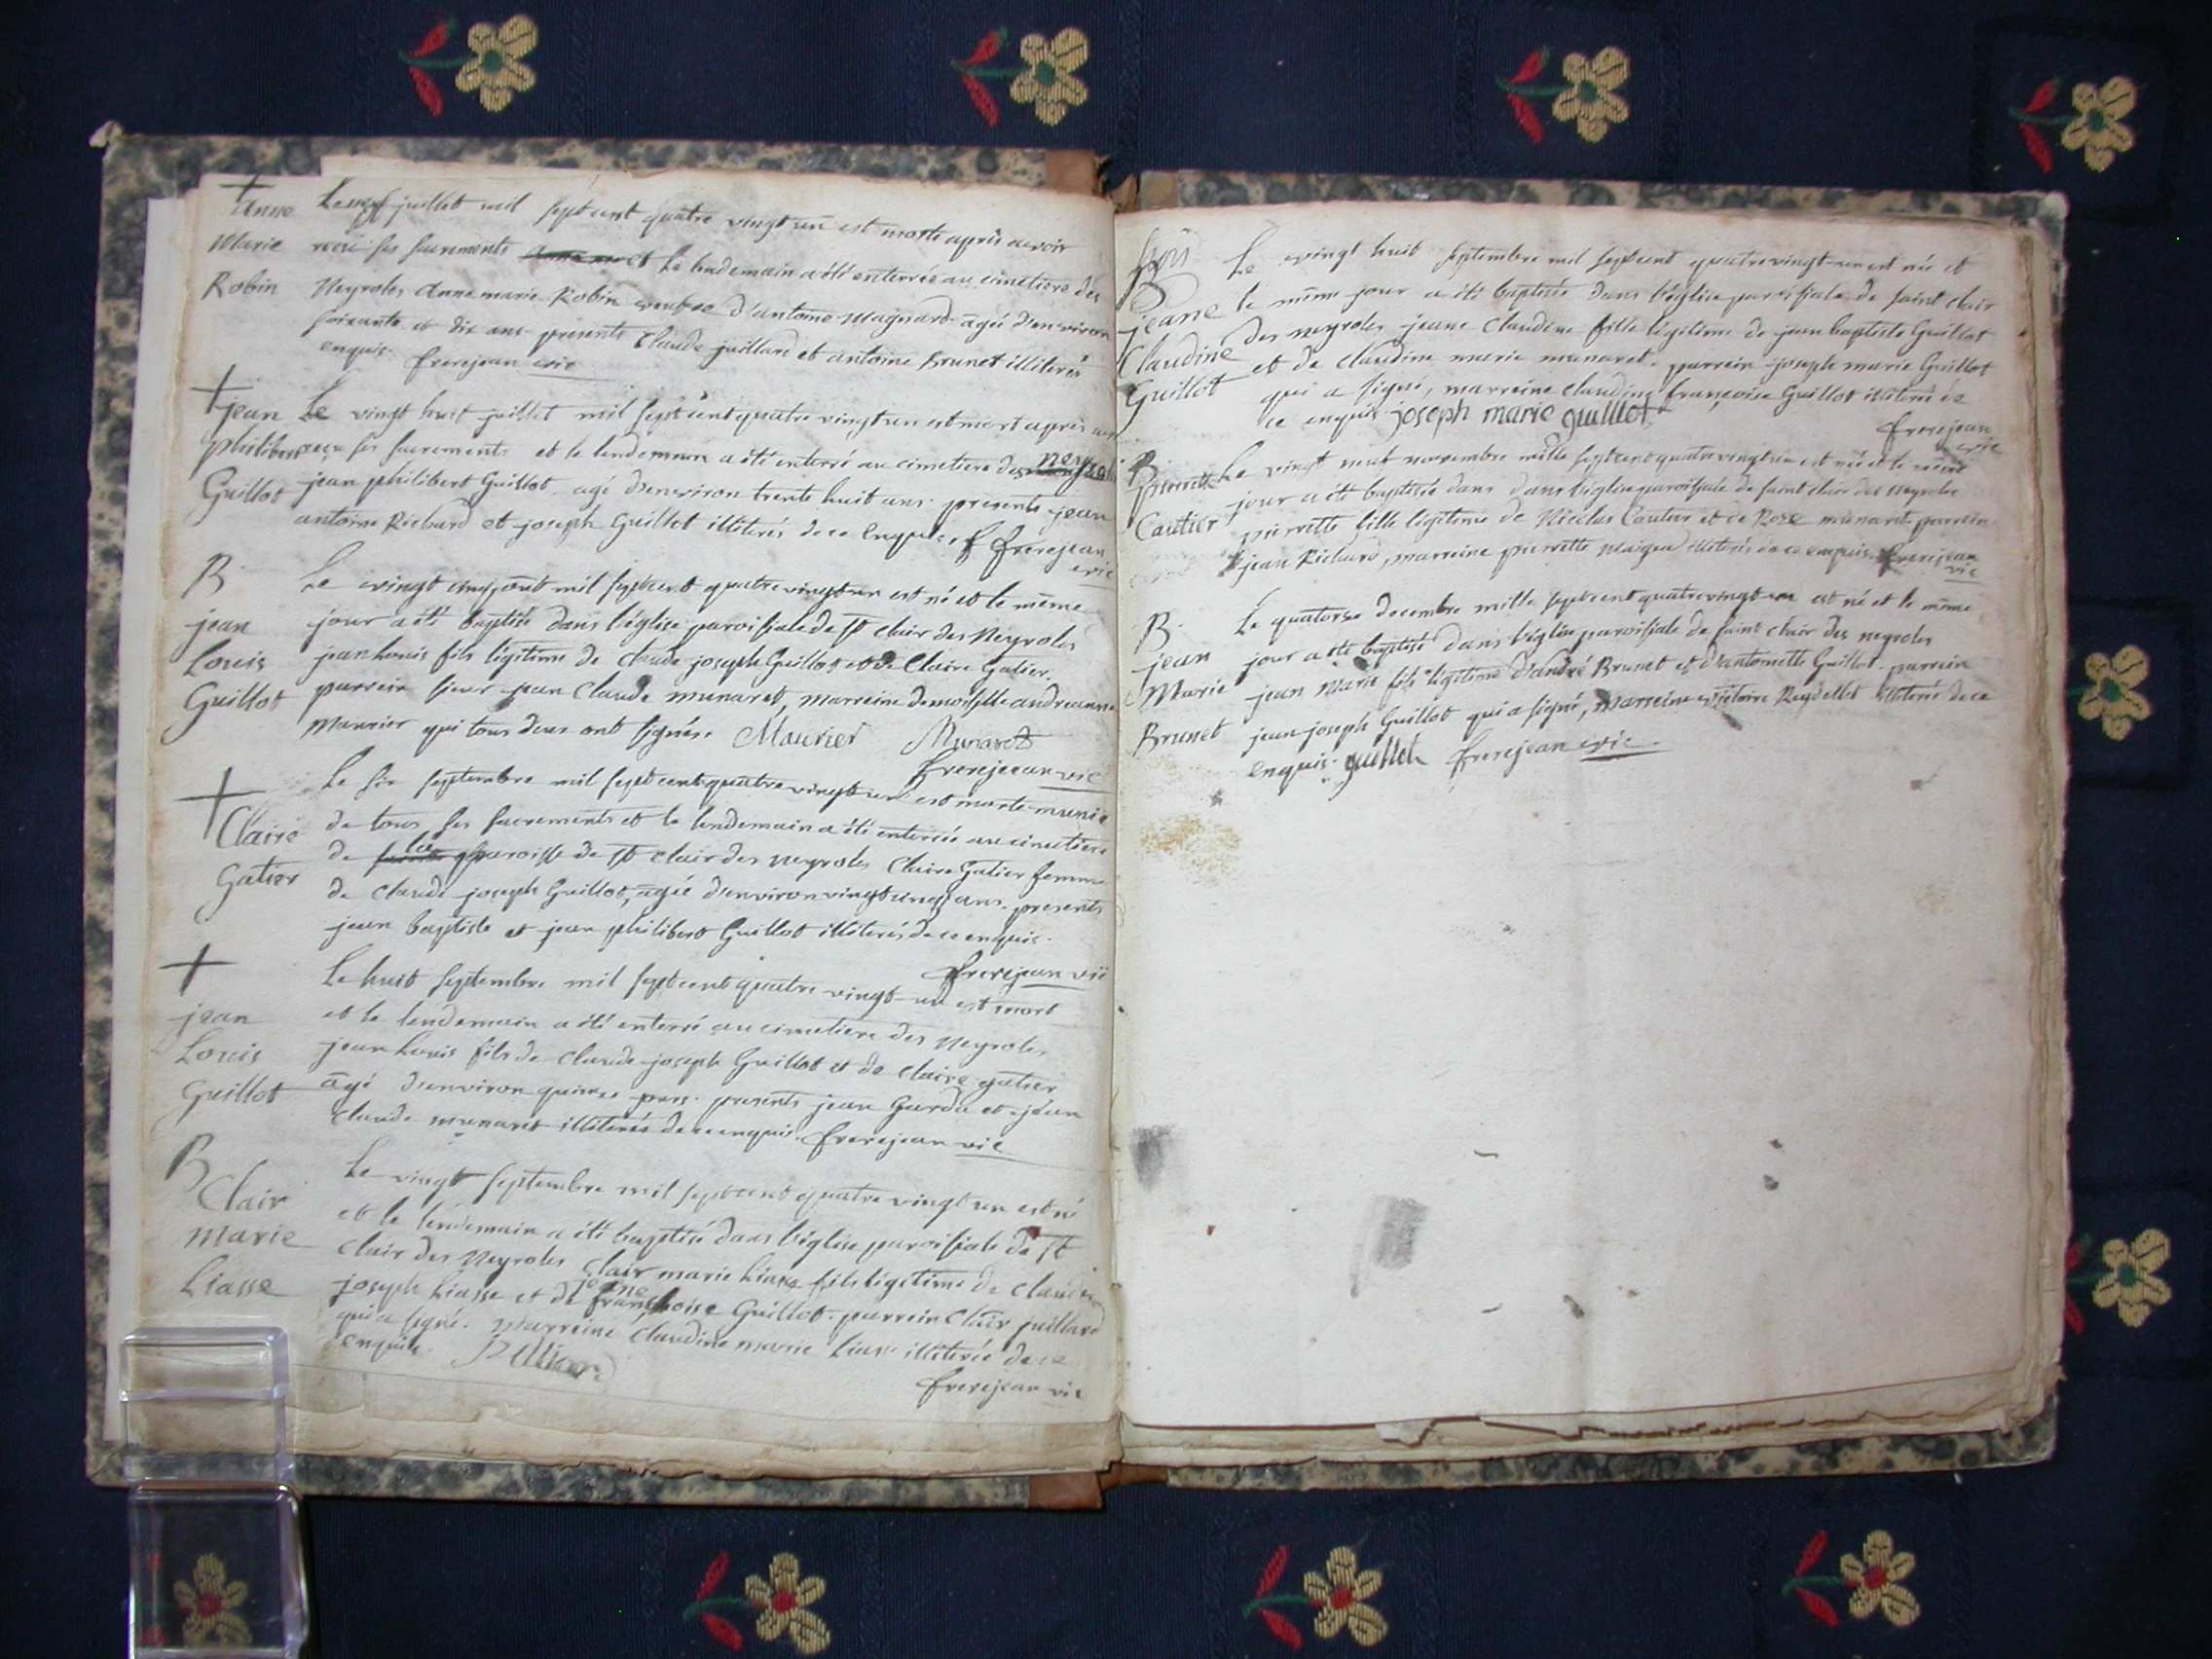 +
Anne Le neuf juillet mil sept cent quatre vingt un est morte après avoir
Marie recu ses sacrements et le lendemain a été enterrée au cimetiere des
Robin Neyroles Anne marie Robin veufve d'antoine Magnard agée d'environ
soixante et dix ans presents Claude juillard et antoine Brunet illiterés
enquis. frerejean vic
+ jean Le vingt huit juillet mil sept cent quatre vingt un est mort après
philibert ses sacrements et le lendemain a été enterré au cimetiere des neyroles
Guillot jean philibert Guillot agé d'environ trente huit ans. presents jean
antoine Richard et joseph Guillot illiterés de ce enquis. frerejean
vic
B. Le vingt cinq août mil sept cent quatre vingt un est né et le même
jean jour a été baptisé dans l'église paroissiale de St clair des Neyroles
Louis jean Louis fils légitime de claude joseph Guillot et de Claire Gatier.
Guillot parrein sieur jean Claude munaret, marreine demoiselle andreanne
Maurier qui tous deux ont signés. Maurier Munaret
frerejean vic
+ Le six septembre mil sept cent quatre vingt un est morte munie
Claire de tous ses sacrements et le lendemain a été enterrée au cimetiere
Gatier de la paroisse de St clair des neyroles Claire Gatier femme
de claude joseph Guillot, agée d'environ vingt cinq ans. presents
jean baptiste et jean philibert Guillot illiterés de ce enquis.
frerejean vic
+ Le huit septembre mil sept cent quatre vingt-un est mort
jean et le lendemain a été enterré au cimetiere des Neyroles
Louis jean Louis fils de claude joseph Guillot et de claire gatier
Guillot agé d'environ quinze jours. presents jean Gardu et jean
claude munaret illiterés de ce enquis. frerejean vic
B Le vingt septembre mil sept cent quatre vingt un est né
Clair et le lendemain a été baptisé dans l'église paroissiale de St
Marie clair des Neyroles clair marie Liasse fils légitime de claude
Liasse joseph Liasse et de Guillot. parrein Clair juillard
qui a signé. marreine claudine marie Liasse illiterée de ce
enquise.
frerejean vic
B Le vingt huit septembre mil sept cent quatre vingt-un est née et
jeane le même jour a été baptisée dans l'église paroissiale de saint clair
Claudine des neyroles jeane claudine fille légitime de jean baptiste Guillot
Guillot et de claudine marie munaret. parrein joseph marie Guillot
qui a signé, marreine claudine françoise Guillot illiterée de
ce enquis joseph marie guillot
frerejean
vic
B.
pierrette Le vingt neuf novembre mille sept cent quatre vingt un est née et le même
Cautier jour a été baptisée dans dans l'église paroissiale de saint clair des neyroles
pierrette fille légitime de Nicolas Cautier et de Rose munaret. parrein
jean Richard, marreine pierrette illiterés de ce enquis. frerejean
vic
B. Le quatorze decembre mille sept cent quatre vingt-un est né et le même
jean jour a été baptisé dans l'église paroissiale de saint clair des neyroles
Marie jean Marie fils légitime d'andré Brunet et d'antoinette Guillot. parrein
Brunet jean joseph Guillot qui a signé, Marreine victoire Reydellet illiterée de ce
enquis. guillot frerejean vic.